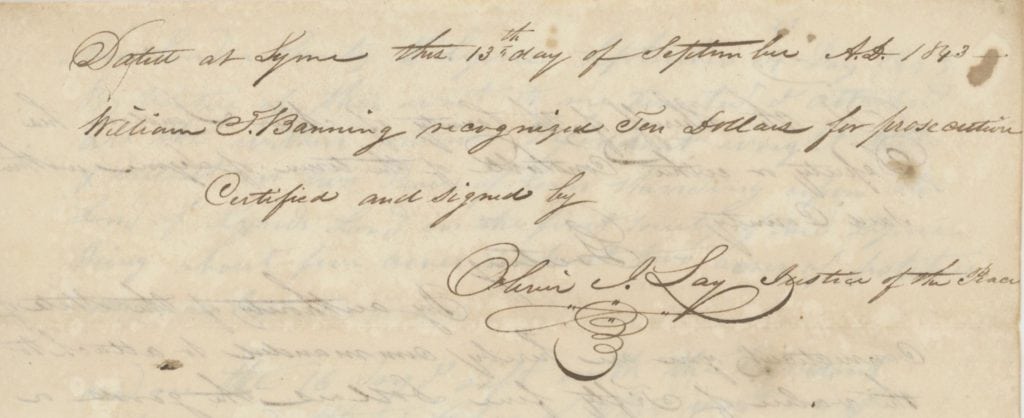 Dated at Lyme this 13th day of September A.D. 1843
William T. Banning recognized Ten Dollars for prosecution
Certified and signed by
Oliver I. Lay Justice of the Peace